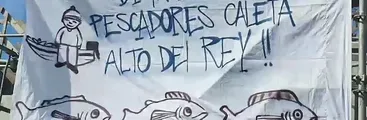 PESCADORES CALETA
ALTO DEL REY!!